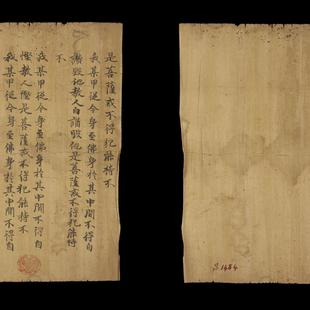 是菩薩戒不得犯能持不
我某甲從今身至佛身於其中間不得自
讃毀他教人自讃毀他是菩薩戒不得犯能持
不
我某甲從今身至佛身於其中間不得自
慳教人慳是菩薩戒不得犯能持不
我某甲從今身至佛身於其中間不得自
S.1484